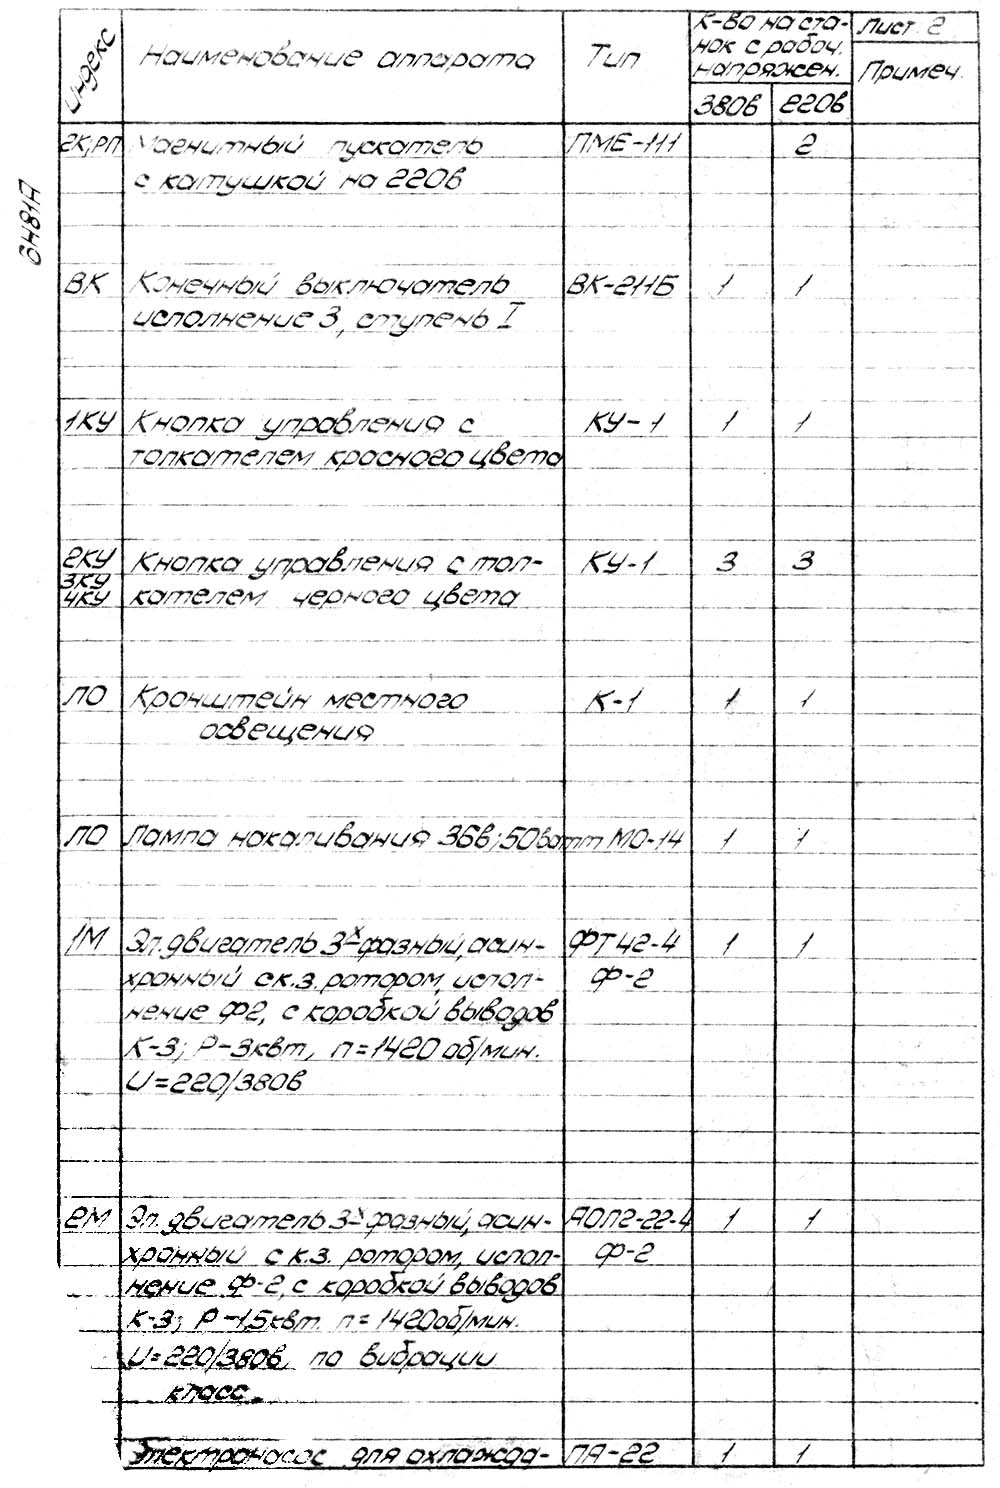 6Н81А
Индекс
Наименование аппарата
Тип
К-во на ста-
нок с рабоч.
напряжен.
380в 220в
Лист 2
Примеч.
2К,РП Магнитный пускатель ПМЕ-111 2
с катушкой на 220в
ВК Конечный выключатель ВК-211Б 1 1
исполнение 3, ступень I
1КУ Кнопка управления с КУ-1 1 1
толкателем красного цвета
2КУ Кнопка управления с тол- КУ-1 3 3
3КУ
4КУ кателем черного цвета
ЛО Кронштейн местного К-1 1 1
освещения
ЛО Лампа накаливания 36в; 50ватт МО-14 1 1
1М Эл. двигатель 3х фазный, асин- ФТ 42-4 1 1
хронный с к.з. ротором, испол- Ф-2
нение Ф2, с коробкой выводов
К-3; Р-3квт, n=1420 об/мин.
U=220/380в
2М Эл. двигатель 3х фазный, асин- АОЛ2-22-4 1 1
хронный с к.з. ротором, испол- Ф-2
нение Ф-2, с коробкой выводов
К-3; Р-1,5квт. n=1420об/мин.
U=220/380в, по вибрации
класс
Электронасос для охлажда- ПА-22 1 1